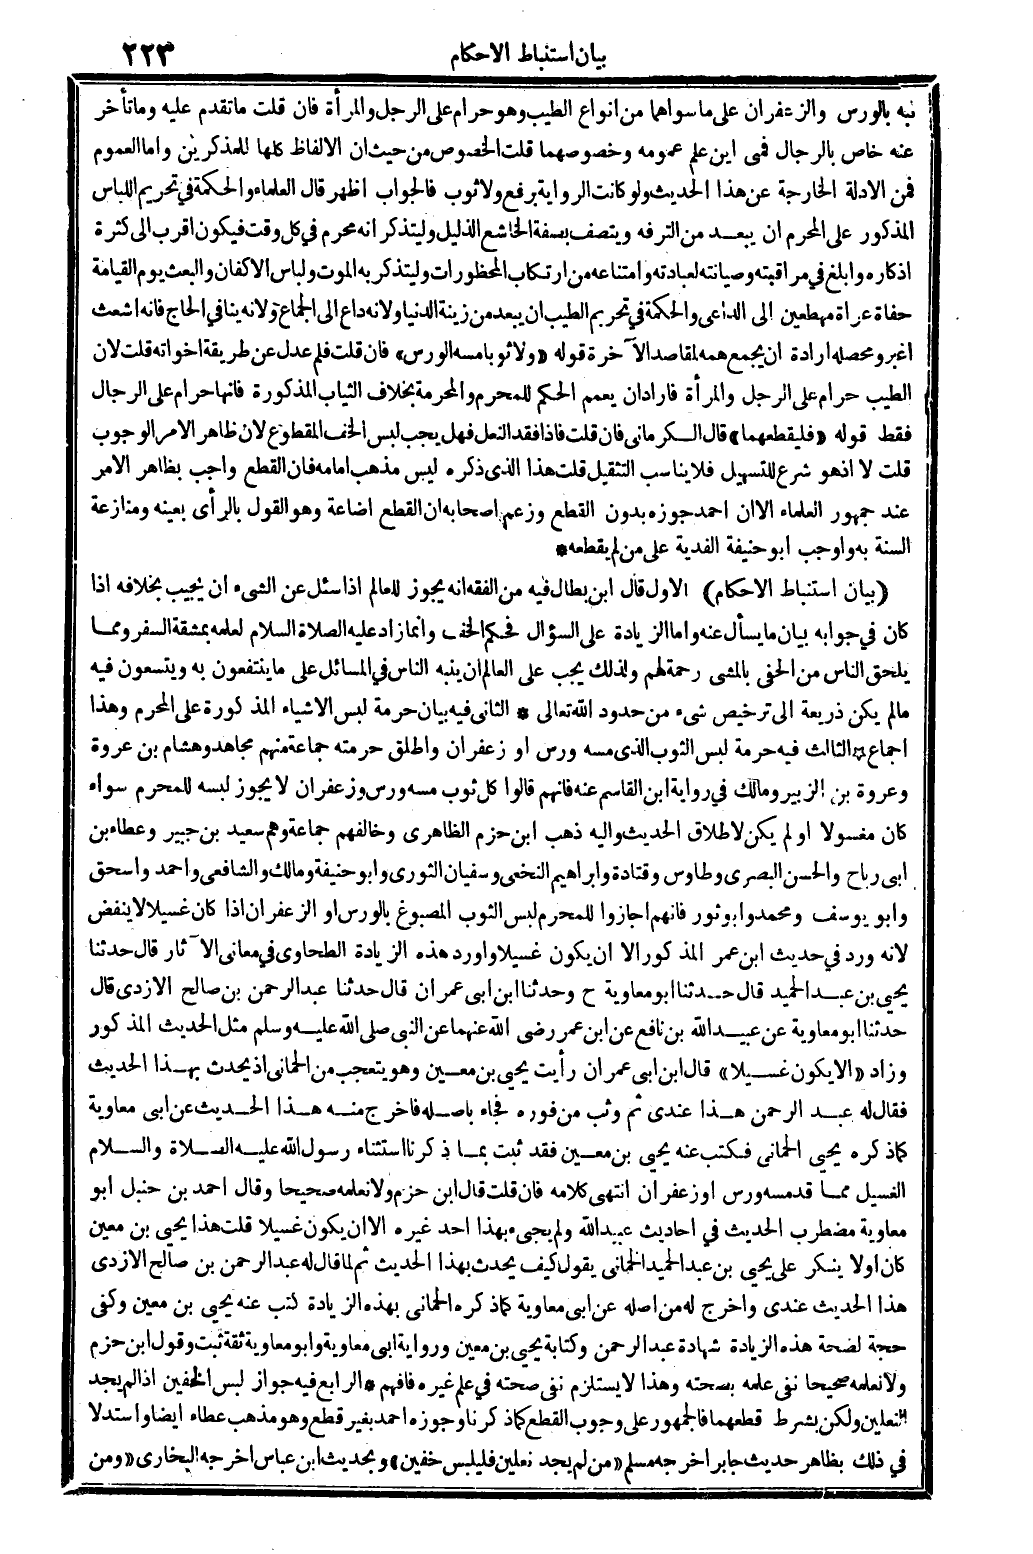 بيان استنباط الاحكام ٢٢٣
نبه بالورس والزعفران على ماسواهما من انواع الطيب وهو حرام على الرجل والمرأة فان قلت ماتقدم عليه وماتأخر
عنه خاص بالرجال فمن اين علم عمومه وخصوصهما قلت الخصوص من حيث ان الالفاظ كلها للمذكرين واما العموم
فمن الادلة الخارجة عن هذا الحديث ولو كانت الرواية برفع ولاثوب فالجواب اظهر قال العلماء والحكمة في تحريم اللباس
المذكور على المحرم ان يبعد من الترفه ويتصف بصفة الخاشع الذليل وليتذكر انه محرم في كل وقت فيكون اقرب الى كثرة
اذكاره وابلغ في مراقبته وصيانته لعبادته وامتناعه من ارتكاب المحظورات وليتذكر به الموت ولباس الاكفان والبعث يوم القيامة
حفاة عراة مهطعين الى الداعى والحكمة في تحريم الطيب ان يبعد من زينة الدنيا ولانه داع الى الجماع ولانه ينافي الحاج فانه اشعث
اغبر ومحصله ارادة ان يجمع همه لمقاصد الآخرة قوله «ولاثوبا مسه الورس» فان قلت فلم عدل عن طريقة اخواته قلت لان
الطيب حرام على الرجل والمرأة فاراد ان يعمم الحكم للمحرم والمحرمة بخلاف الثياب المذكورة فانها حرام على الرجال
فقط قوله «فليقطعهما» قال الكرمانى فان قلت فاذا فقد النعل فهل يجب لبس الخف المقطوع لان ظاهر الامر الوجوب
قلت لا اذ هو شرع للتسهيل فلا يناسب التثقيل قلت هذا الذى ذكره ليس مذهب امامه فان القطع واجب بظاهر الامر
عند جمهور العلماء الا ان احمد جوزه بدون القطع وزعم اصحابه ان القطع اضاعة وهو القول بالرأى بعينه ومنازعة
السنة به واوجب ابو حنيفة الفدية على من لم يقطعه *
(بيان استنباط الاحكام) الاول قال ابن بطال فيه من الفقه انه يجوز للعالم اذا سئل عن الشىء ان يجيب بخلافه اذا
كان في جوابه بيان ما يسأل عنه واما الزيادة على السؤال فحكم الخف وانما زاد عليه الصلاة السلام لعلمه بمشقة السفر ومما
يلحق الناس من الحفى بالمشى رحمة لهم ولذلك يجب على العالم ان ينبه الناس في المسائل على ما ينتفعون به ويتسعون فيه
مالم يكن ذريعة الى ترخيص شىء من حدود الله تعالى * الثانى فيه بيان حرمة لبس الاشياء المذكورة على المحرم وهذا
اجماع * الثالث فيه حرمة لبس الثوب الذى مسه ورس او زعفران واطلق حرمته جماعة منهم مجاهد وهشام بن عروة
وعروة بن الزبير ومالك في رواية ابن القاسم عنه فانهم قالوا كل ثوب مسه ورس وزعفران لا يجوز لبسه للمحرم سواء
كان مغسولا او لم يكن لاطلاق الحديث واليه ذهب ابن حزم الظاهرى وخالفهم جماعة وهم سعيد بن جبير وعطاء بن
ابى رباح والحسن البصرى وطاوس وقتادة وابراهيم النخعى وسفيان الثورى وابو حنيفة ومالك والشافعى واحمد واسحق
وابو يوسف ومحمد وابو ثور فانهم اجازوا للمحرم لبس الثوب المصبوغ بالورس او الزعفران اذا كان غسيلا لا ينفض
لانه ورد في حديث ابن عمر المذكور الا ان يكون غسيلا واورد هذه الزيادة الطحاوى في معانى الآثار قال حدثنا
يحيى بن عبد الحميد قال حدثنا ابو معاوية ح وحدثنا ابن ابى عمران قال حدثنا عبد الرحمن بن صالح الازدى قال
حدثنا ابو معاوية عن عبيد الله بن نافع عن ابن عمر رضى الله عنهما عن النبى صلى الله عليه وسلم مثل الحديث المذكور
وزاد «الا يكون غسيلا» قال ابن ابى عمران رأيت يحيى بن معين وهو يتعجب من الحمانى اذ يحدث بهذا الحديث
فقال له عبد الرحمن هذا عندى ثم وثب من فوره فجاء باصله فاخرج منه هذا الحديث عن ابى معاوية
كما ذكره يحيى الحمانى فكتب عنه يحيى بن معين فقد ثبت بما ذكرنا استثناء رسول الله عليه الصلاة والسلام
الغسيل مما قد مسه ورس او زعفران انتهى كلامه فان قلت قال ابن حزم ولا نعلمه صحيحا وقال احمد بن حنبل ابو
معاوية مضطرب الحديث في احاديث عبيد الله ولم يجىء بهذا احد غيره الا ان يكون غسيلا قلت هذا يحيى بن معين
كان اولا ينكر على يحيى بن عبد الحميد الحمانى يقول كيف يحدث بهذا الحديث ثم لما قال له عبد الرحمن بن صالح الازدى
هذا الحديث عندى واخرج له من اصله عن ابى معاوية كما ذكره الحمانى بهذه الزيادة كتب عنه يحيى بن معين وكفى
حجة لصحة هذه الزيادة شهادة عبد الرحمن وكتابة يحيى بن معين ورواية ابى معاوية وابو معاوية ثقة ثبت وقول ابن حزم
ولا نعلمه صحيحا نفى علمه بصحته وهذا لا يستلزم نفى صحته في علم غيره فافهم * الرابع فيه جواز لبس الخفين اذا لم يجد
النعلين ولكن بشرط قطعهما فالجمهور على وجوب القطع كما ذكرنا وجوزه احمد بغير قطع وهو مذهب عطاء ايضا واستدلا
في ذلك بظاهر حديث جابر اخرجه مسلم «من لم يجد نعلين فليلبس خفين» وبحديث ابن عباس اخرجه البخارى «ومن